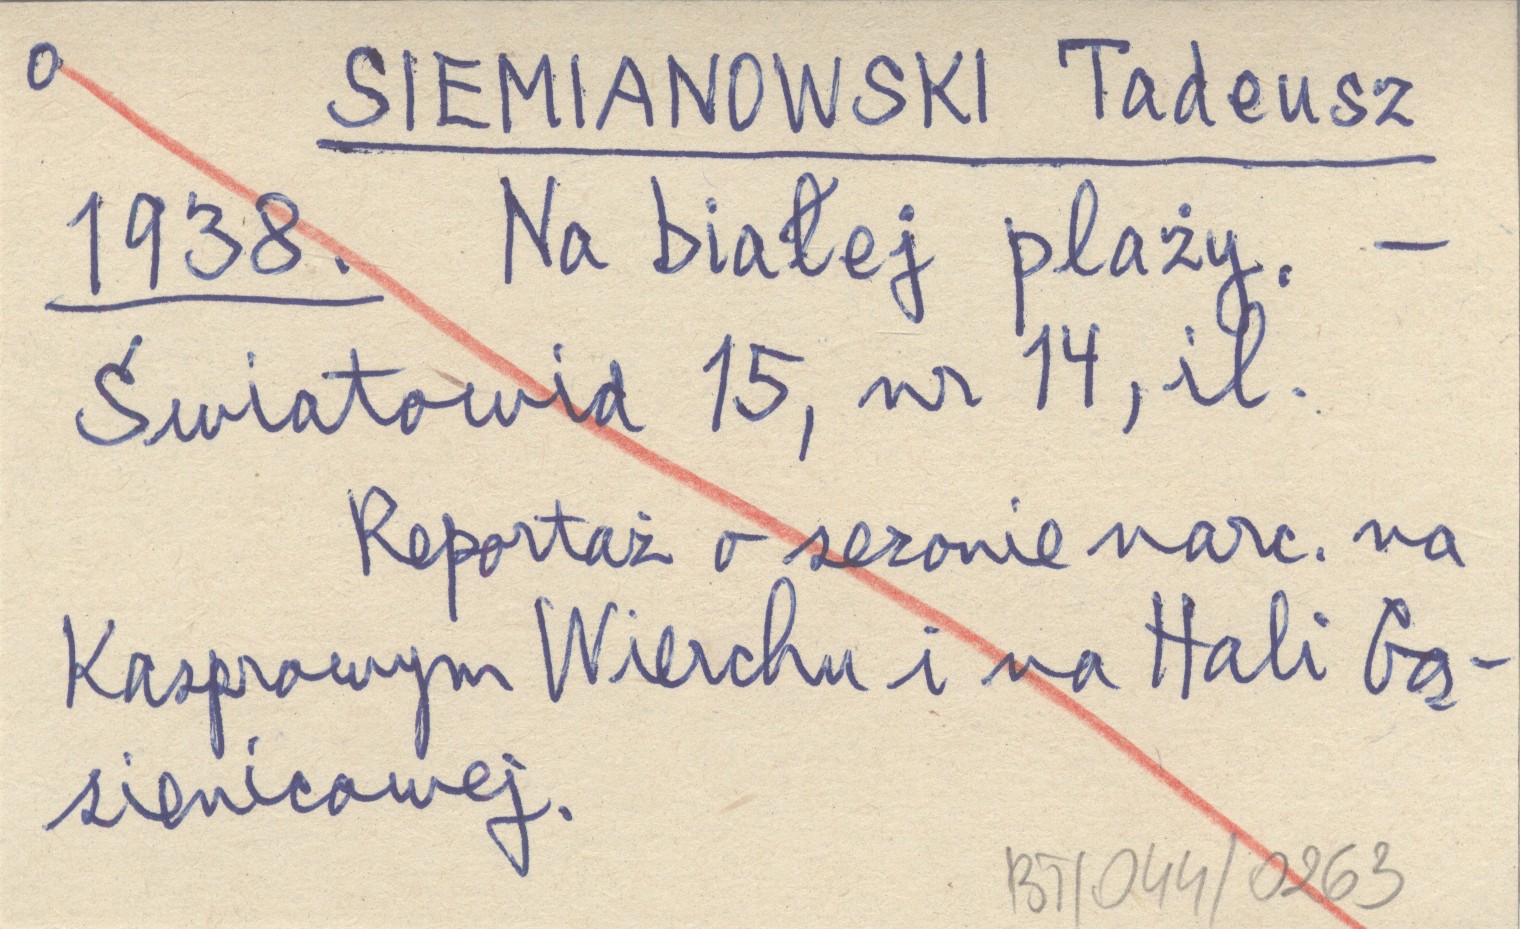 o SIEMIANOWSKI Tadeusz
1938. Na białej plaży. –
Światowid 15, nr 14, il.
Reportaż o sezonie narc. na
Kasprowym Wierchu i na Hali Gą-
sienicowej.
BT/044/0263